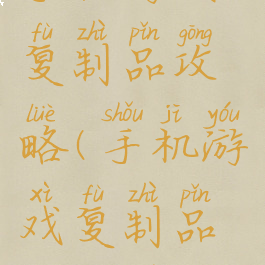 fù zhì pǐn gōng
复制品攻
lüè shǒu jī yóu
略(手机游
xì fù zhì pǐn
戏复制品